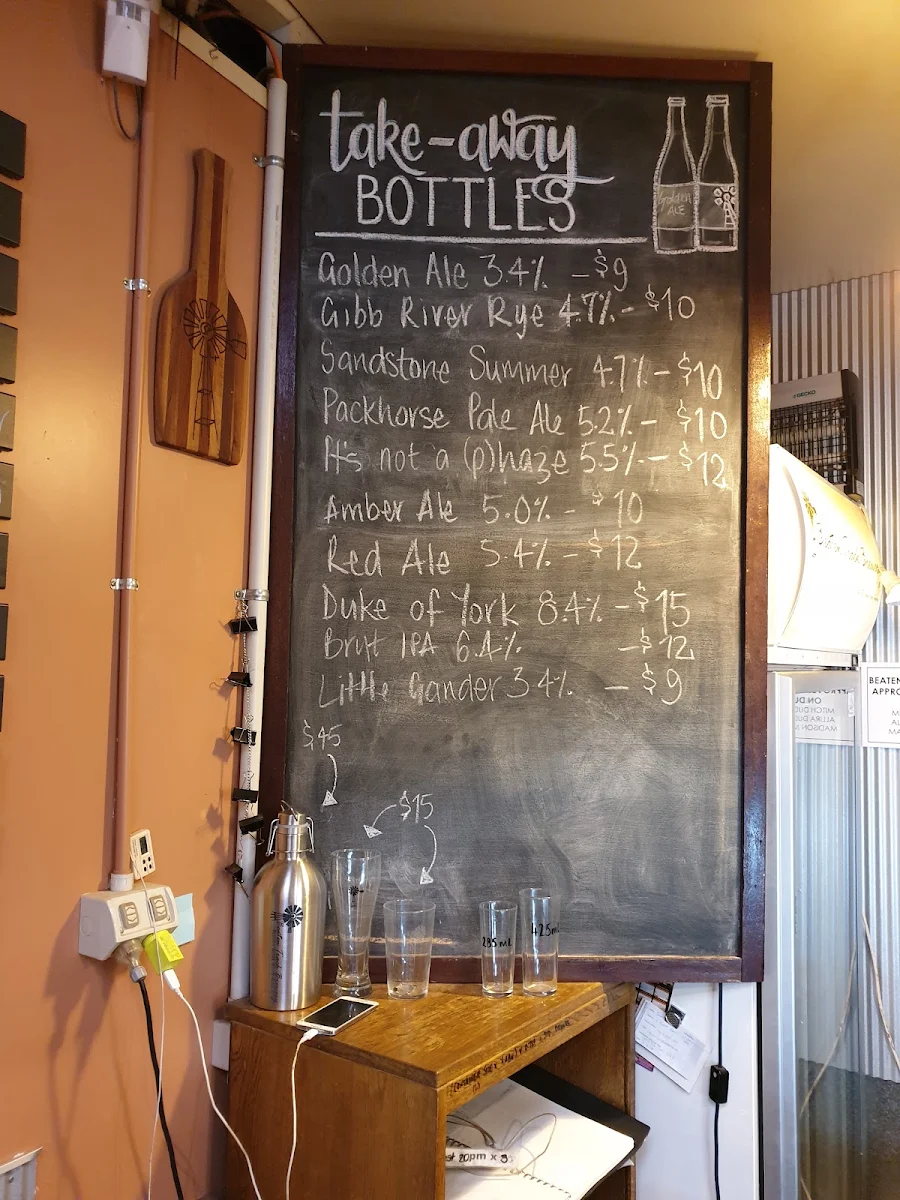 take-away
BOTTLES
Golden
ALE
Golden Ale 3.4% - $9
Gibb River Rye 4.7% - $10
Sandstone Summer 4.7% - $10
Packhorse Pale Ale 5.2% - $10
It's not a (p)haze 5.5% - $12
Amber Ale 5.0% - $10
Red Ale 5.4% - $12
Duke of York 8.4% - $15
Brut IPA 6.4% - $12
Little Gander 3.4% - $9
$45
$15
285ml
425ml
GECKO
BEATEN
APPRO
ON DU
MITCH DU
ALLIRA DU
MADISON
st 20pm x 3